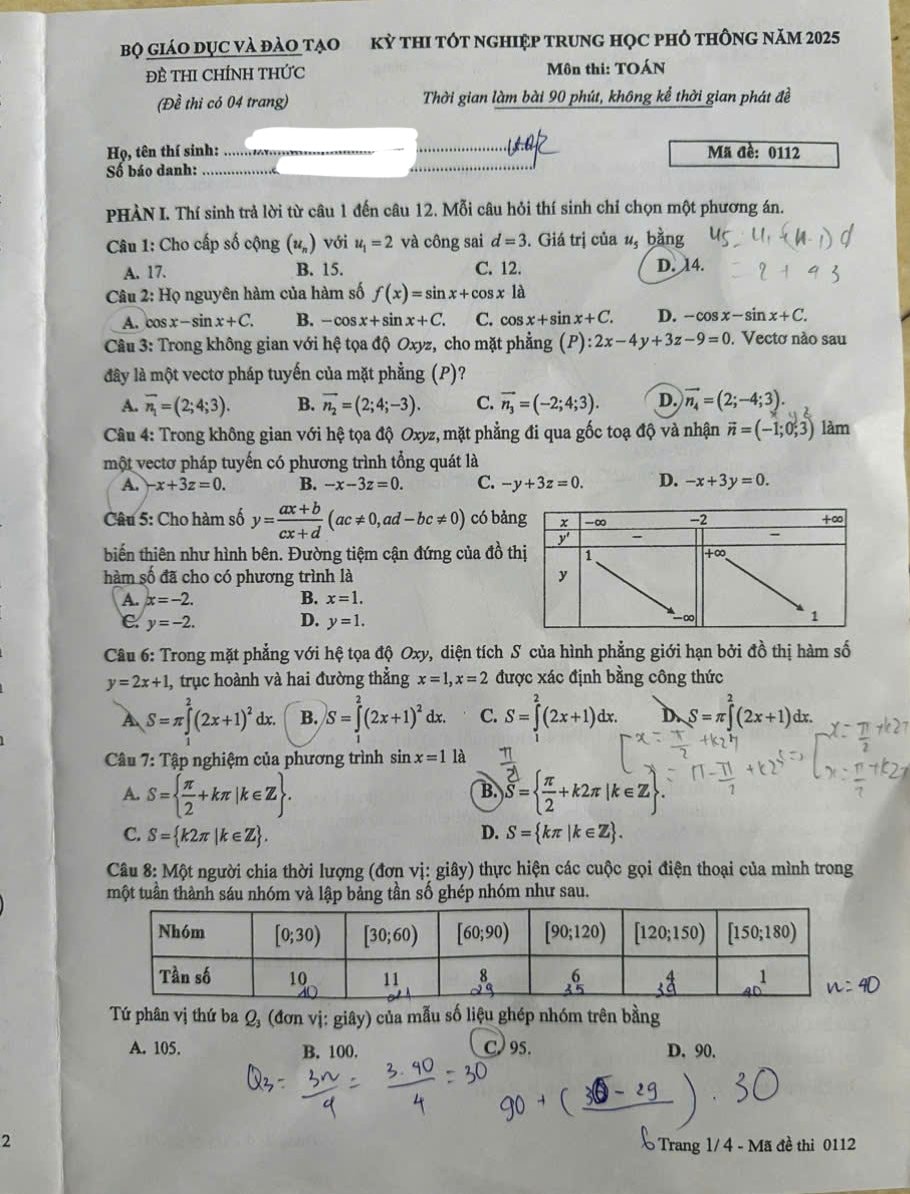 BỘ GIÁO DỤC VÀ ĐÀO TẠO
KỲ THI TỐT NGHIỆP TRUNG HỌC PHỔ THÔNG NĂM 2025
ĐỀ THI CHÍNH THỨC
Môn thi: TOÁN
(Đề thi có 04 trang)
Thời gian làm bài 90 phút, không kể thời gian phát đề
Họ, tên thí sinh:
Số báo danh:
Mã đề: 0112
PHẦN I. Thí sinh trả lời từ câu 1 đến câu 12. Mỗi câu hỏi thí sinh chỉ chọn một phương án.
Câu 1: Cho cấp số cộng (uₙ) với u₁ = 2 và công sai d = 3. Giá trị của u₅ bằng
U5 = U1 + (n-1) d
A. 17. B. 15. C. 12. D. 14.
= 2 + 4 3
Câu 2: Họ nguyên hàm của hàm số f(x) = sin x + cos x là
A. cos x − sin x + C. B. −cos x + sin x + C. C. cos x + sin x + C. D. −cos x − sin x + C.
Câu 3: Trong không gian với hệ tọa độ Oxyz, cho mặt phẳng (P): 2x − 4y + 3z − 9 = 0. Vectơ nào sau
đây là một vectơ pháp tuyến của mặt phẳng (P)?
A. n₁ = (2;4;3). B. n₂ = (2;4;−3). C. n₃ = (−2;4;3). D. n₄ = (2;−4;3).
x y z
Câu 4: Trong không gian với hệ tọa độ Oxyz, mặt phẳng đi qua gốc toạ độ và nhận n = (−1;0;3) làm
một vectơ pháp tuyến có phương trình tổng quát là
A. −x + 3z = 0. B. −x − 3z = 0. C. −y + 3z = 0. D. −x + 3y = 0.
Câu 5: Cho hàm số y = (ax + b)/(cx + d) (ac ≠ 0, ad − bc ≠ 0) có bảng
biến thiên như hình bên. Đường tiệm cận đứng của đồ thị
hàm số đã cho có phương trình là
A. x = −2. B. x = 1.
C. y = −2. D. y = 1.
x −∞ −2 +∞
y' − −
y 1 −∞ +∞ 1
Câu 6: Trong mặt phẳng với hệ tọa độ Oxy, diện tích S của hình phẳng giới hạn bởi đồ thị hàm số
y = 2x + 1, trục hoành và hai đường thẳng x = 1, x = 2 được xác định bằng công thức
A. S = π∫₁²(2x + 1)² dx. B. S = ∫₁²(2x + 1)² dx. C. S = ∫₁²(2x + 1) dx. D. S = π∫₁²(2x + 1) dx.
Câu 7: Tập nghiệm của phương trình sin x = 1 là
A. S = {π/2 + kπ | k ∈ ℤ}. B. S = {π/2 + k2π | k ∈ ℤ}.
C. S = {k2π | k ∈ ℤ}. D. S = {kπ | k ∈ ℤ}.
Câu 8: Một người chia thời lượng (đơn vị: giây) thực hiện các cuộc gọi điện thoại của mình trong
một tuần thành sáu nhóm và lập bảng tần số ghép nhóm như sau.
Nhóm [0;30) [30;60) [60;90) [90;120) [120;150) [150;180)
Tần số 10 11 8 6 4 1
10 21 29 35 39 40
n = 40
Tứ phân vị thứ ba Q₃ (đơn vị: giây) của mẫu số liệu ghép nhóm trên bằng
A. 105. B. 100. C. 95. D. 90.
Q3 = 3n/4 = 3.40/4 = 30
90 + (30 - 29 / 6) . 30
Trang 1/4 - Mã đề thi 0112
2